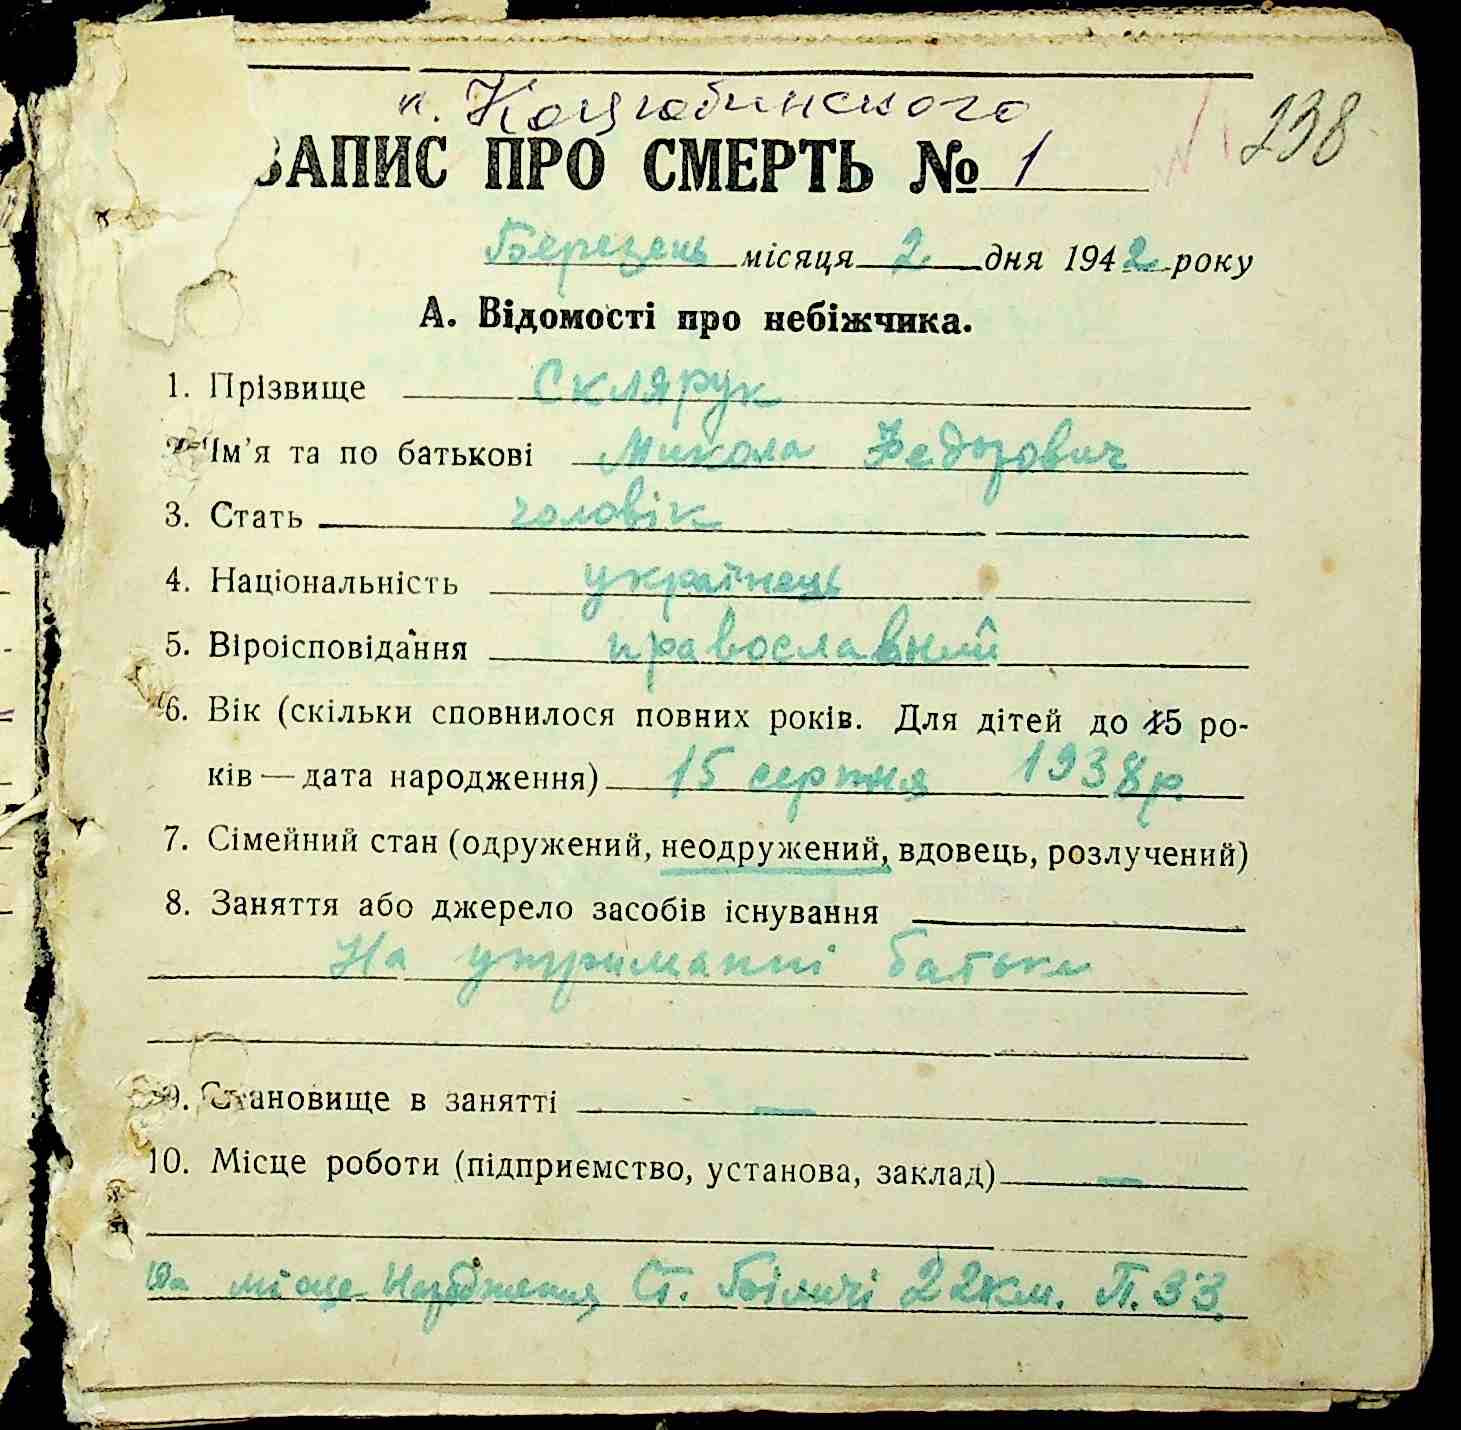 п. Коцюбинского
238
ЗАПИС ПРО СМЕРТЬ № 1
Березень місяця 2 дня 1942 року
А. Відомості про небіжчика.
1. Прізвище Склярук
2. Ім'я та по батькові Микола Федорович
3. Стать чоловік
4. Національність українець
5. Віроісповідання православний
6. Вік (скільки сповнилося повних років. Для дітей до 15 ро-
ків — дата народження) 15 серпня 1938 р.
7. Сімейний стан (одружений, неодружений, вдовець, розлучений)
8. Заняття або джерело засобів існування
На утриманні батька
9. Становище в занятті —
10. Місце роботи (підприємство, установа, заклад) —
10а місце Народження Ст. Біличі 22 км. П. ЗЗ.